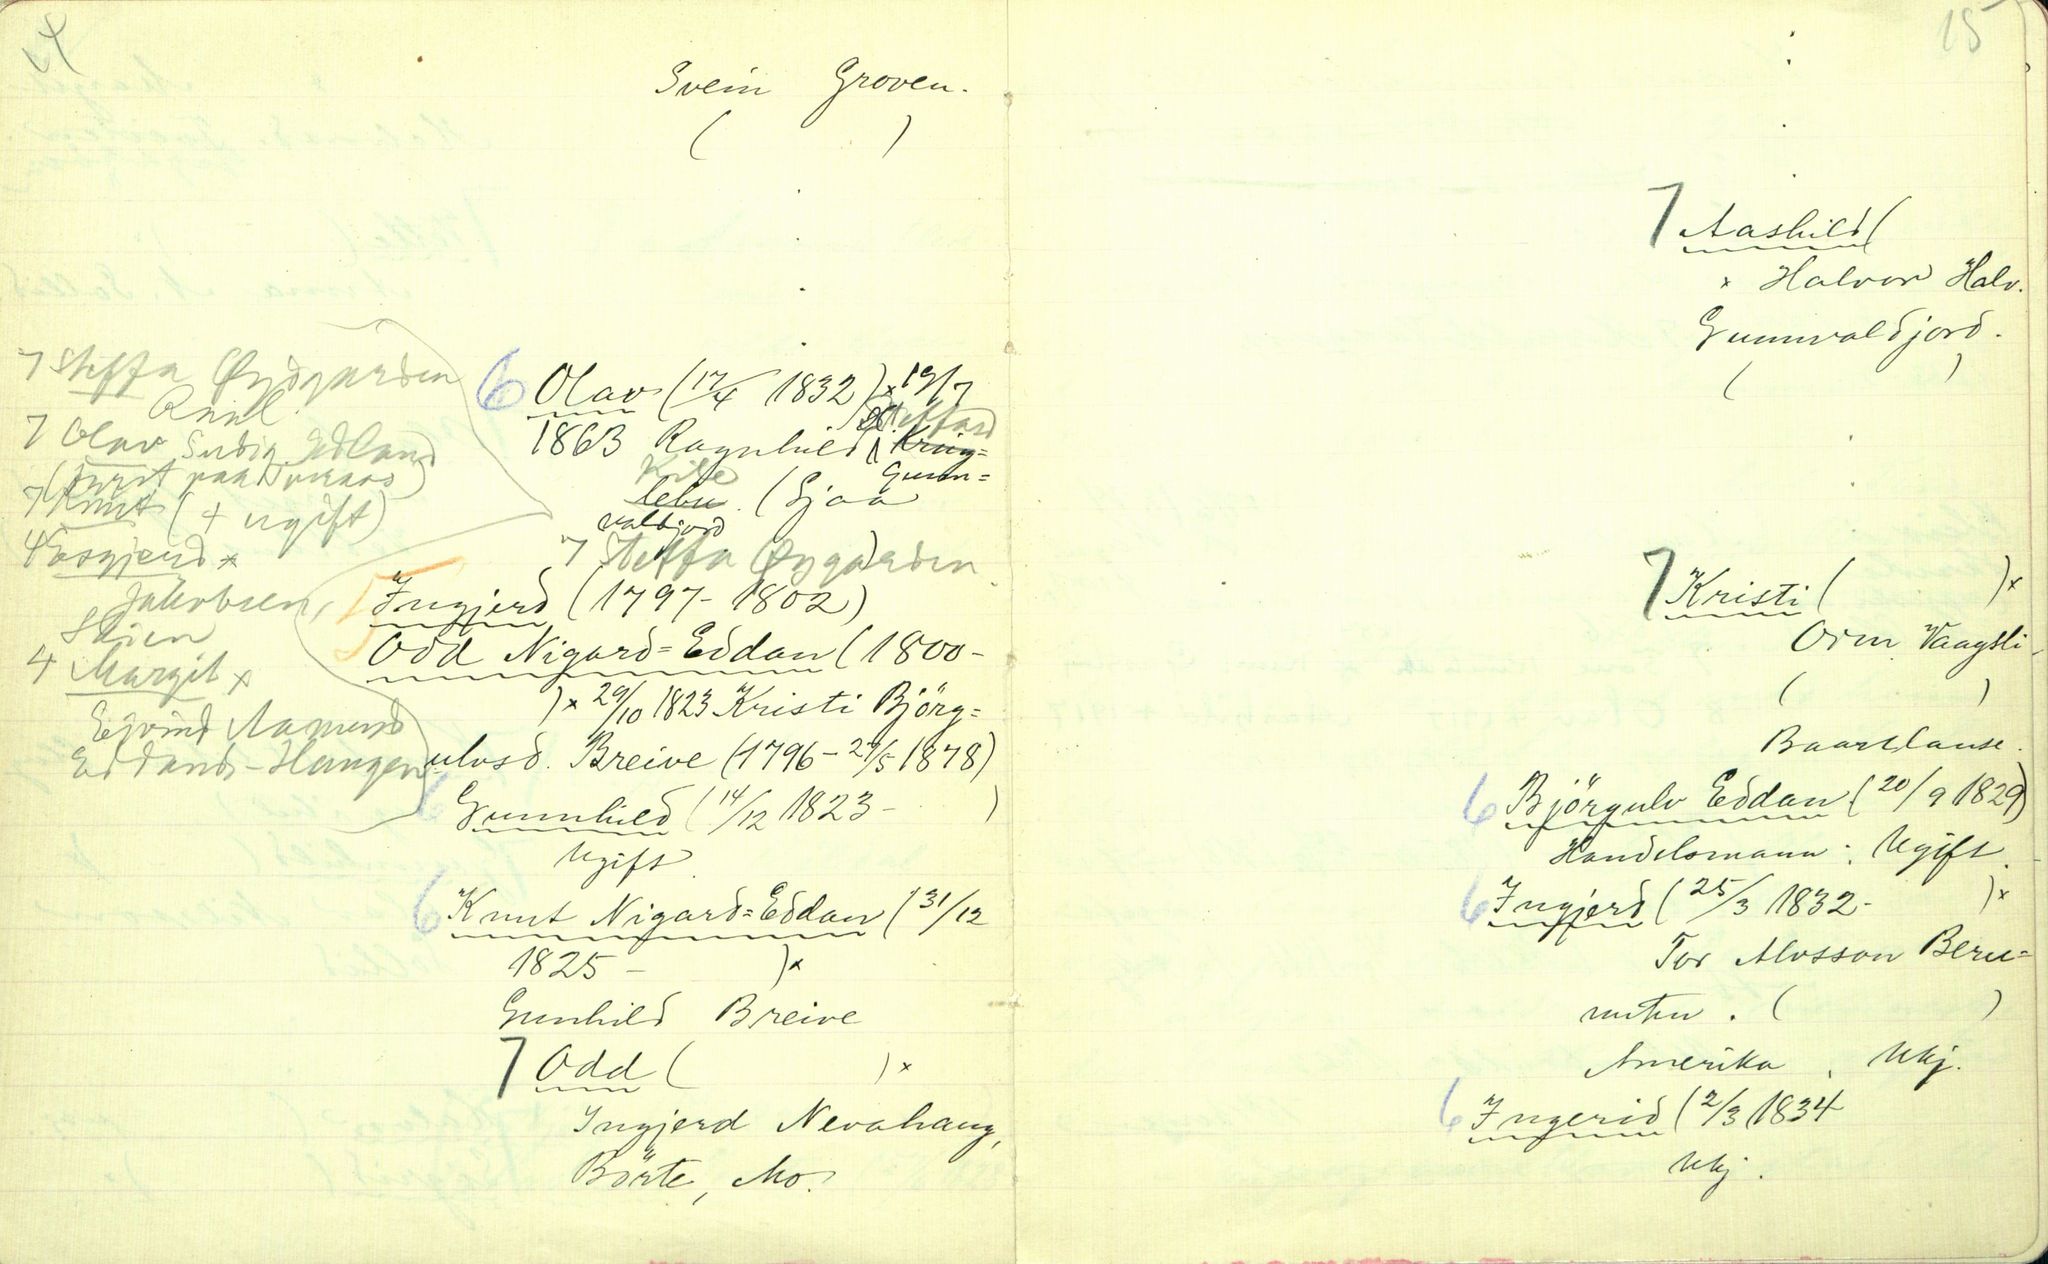 Svein Groven.
( )
7 Steffa Øygarden
7 Olav Edland
7 Knut (+ ugift)
4 Esgjerd ×
Jakobsen,
Skien
4 Margit ×
Eivind Aamund
Eddand-Haugen
6 Olav (17/4 1832) × 19/7
1863 Ragnhild Kring=
Steffasd
lebu. (Sjaa
Kile
Gunn=
valdjord
7 Steffa Øygarden
5 Ingjerd (1797-1802)
Odd Nigard=Eddan (1800-
) × 29/10 1823 Kristi Björg=
ulvsd. Breive (1796 - 27/5 1878)
6 Gunnhild (14/12 1823 - )
Ugift
6 Knut Nigard=Eddan (31/12
1825 - ) ×
Gunhild Breive
7 Odd ( ) ×
Ingjerd Nevahaug,
Börte, Mo.
15
7 Aashild (
× Halvor Halv.
Gunnvaldjord.
( )
7 Kristi ( ) ×
Orm Vaagsli
( )
6 Björgulv Eddan (20/9 1829)
Handelsmann. Ugift.
6 Ingjerd (25/3 1832 - ) ×
Tor Alvsson Beru=
nuten. ( )
Amerika, Ukj.
6 Ingerid (2/3 1834
Ukj.